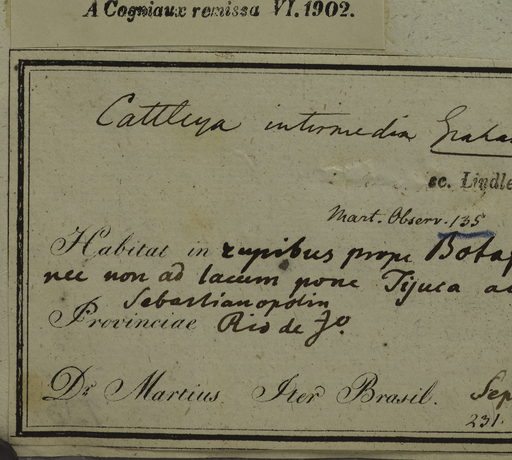 A Cogniaux remissa VI. 1902.
Cattleya intermedia Graha
sc. Lindle
Mart. Observ. 135
Habitat in rupibus prope Botaf
nec non ad lacum pone Tijuca ad
Sebastianopolin
Provinciae Rio de Jo.
Dr. Martius Iter Brasil. Sep
231.